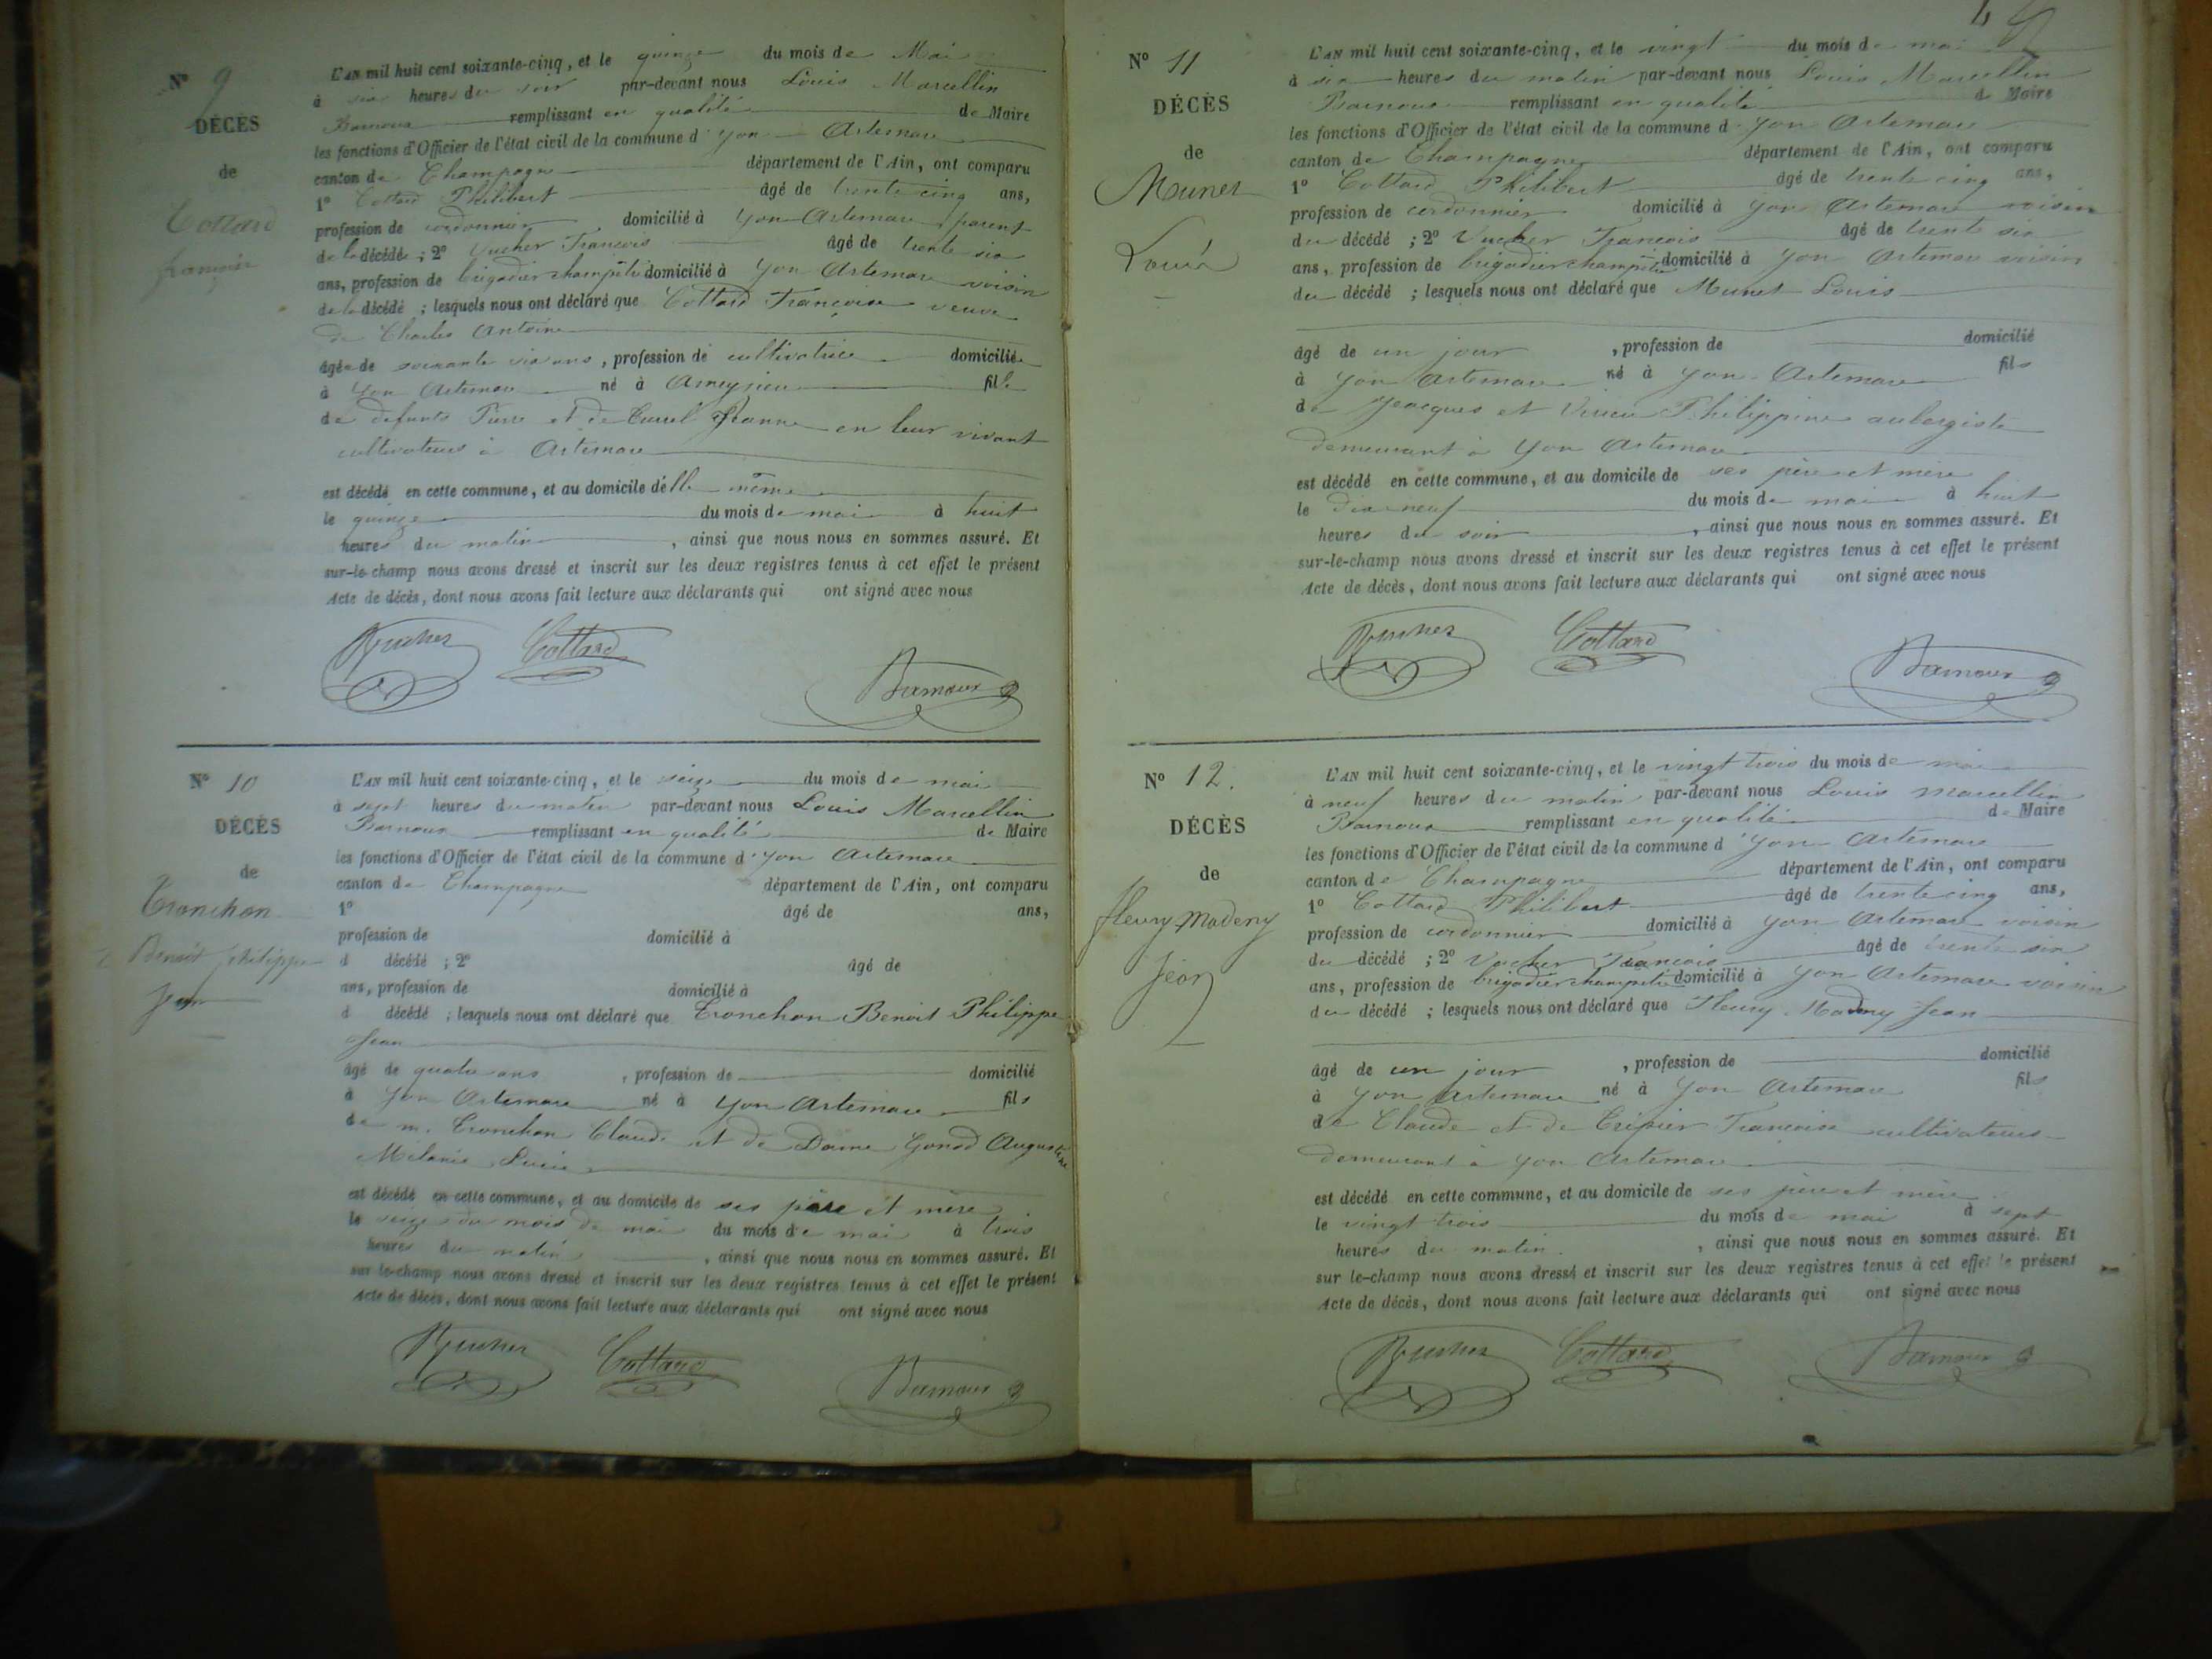 Nº 9
DÉCÈS
de
Cottard
françoise
L'AN mil huit cent soixante-cinq, et le quinze du mois de Mai
à six heures du soir par-devant nous Louis Marcellin
Barnoux remplissant en qualité de Maire
les fonctions d'Officier de l'état civil de la commune d'Yon Artemare
canton de Champagne département de l'Ain, ont comparu
1º Cottard Philibert âgé de trente cinq ans,
profession de cordonnier domicilié à Yon Artemare parent
de la décédé ; 2º Vucher François âgé de trente six
ans, profession de brigadier champêtre domicilié à Yon Artemare voisin
de la décédé ; lesquels nous ont déclaré que Cottard Françoise veuve
de Charles Antoine
âgée de soixante six ans, profession de cultivatrice domiciliée
à Yon Artemare né à Ameyzieu fille
de défunts Pierre et de Jeanne en leur vivant
cultivateurs à Artemare
est décédé en cette commune, et au domicile d'elle même
le quinze du mois de mai à huit
heures du matin, ainsi que nous nous en sommes assuré. Et
sur-le-champ nous avons dressé et inscrit sur les deux registres tenus à cet effet le présent
Acte de décès, dont nous avons fait lecture aux déclarants qui ont signé avec nous
Vucher Cottard Barnoux
Nº 10
DÉCÈS
de
Tronchon
Benoit philippe
Jean
L'AN mil huit cent soixante-cinq, et le seize du mois de mai
à sept heures du matin par-devant nous Louis Marcellin
Barnoux remplissant en qualité de Maire
les fonctions d'Officier de l'état civil de la commune d'Yon Artemare
canton de Champagne département de l'Ain, ont comparu
1º âgé de ans,
profession de domicilié à
d décédé ; 2º âgé de
ans, profession de domicilié à
d décédé ; lesquels nous ont déclaré que Tronchon Benoit Philippe
Jean
âgé de quatre ans, profession de domicilié
à Yon Artemare né à Yon Artemare fils
de m. Tronchon Claude et de Dame Gonod Augustine
Mélanie Lucie
est décédé en cette commune, et au domicile de ses père et mère
le seize du mois de mai du mois de mai à trois
heures du matin, ainsi que nous nous en sommes assuré. Et
sur le-champ nous avons dressé et inscrit sur les deux registres tenus à cet effet le présent
Acte de décès, dont nous avons fait lecture aux déclarants qui ont signé avec nous
Vucher Cottard Barnoux
Nº 11
DÉCÈS
de
Munet
Louis
L'AN mil huit cent soixante-cinq, et le vingt du mois de mai
à six heures du matin par-devant nous Louis Marcellin
Barnoux remplissant en qualité de Maire
les fonctions d'Officier de l'état civil de la commune d'Yon Artemare
canton de Champagne département de l'Ain, ont comparu
1º Cottard Philibert âgé de trente cinq ans,
profession de cordonnier domicilié à Yon Artemare voisin
du décédé ; 2º Vucher François âgé de trente six
ans, profession de brigadier champêtre domicilié à Yon Artemare voisin
du décédé ; lesquels nous ont déclaré que Munet Louis
âgé de un jour, profession de domicilié
à Yon Artemare né à Yon Artemare fils
de Jeacques et Virieu Philippine aubergiste
demeurant à Yon Artemare
est décédé en cette commune, et au domicile de ses père et mère
le dix neuf du mois de mai à huit
heures du soir, ainsi que nous nous en sommes assuré. Et
sur-le-champ nous avons dressé et inscrit sur les deux registres tenus à cet effet le présent
Acte de décès, dont nous avons fait lecture aux déclarants qui ont signé avec nous
Vucher Cottard Barnoux
Nº 12.
DÉCÈS
de
fleury Madeny
Jean
L'AN mil huit cent soixante-cinq, et le vingt trois du mois de mai
à neuf heures du matin par-devant nous Louis Marcellin
Barnoux remplissant en qualité de Maire
les fonctions d'Officier de l'état civil de la commune d'Yon Artemare
canton de Champagne département de l'Ain, ont comparu
1º Cottard Philibert âgé de trente cinq ans,
profession de cordonnier domicilié à Yon Artemare voisin
du décédé ; 2º Vucher François âgé de trente six
ans, profession de brigadier champêtre domicilié à Yon Artemare voisin
du décédé ; lesquels nous ont déclaré que Fleury Jean
âgé de un jour, profession de domicilié
à Yon Artemare né à Yon Artemare fils
de Claude et de Tripier Françoise cultivateurs
demeurant à Yon Artemare
est décédé en cette commune, et au domicile de ses père et mère
le vingt trois du mois de mai à sept
heures du matin, ainsi que nous nous en sommes assuré. Et
sur le-champ nous avons dressé et inscrit sur les deux registres tenus à cet effet le présent
Acte de décès, dont nous avons fait lecture aux déclarants qui ont signé avec nous
Vucher Cottard Barnoux